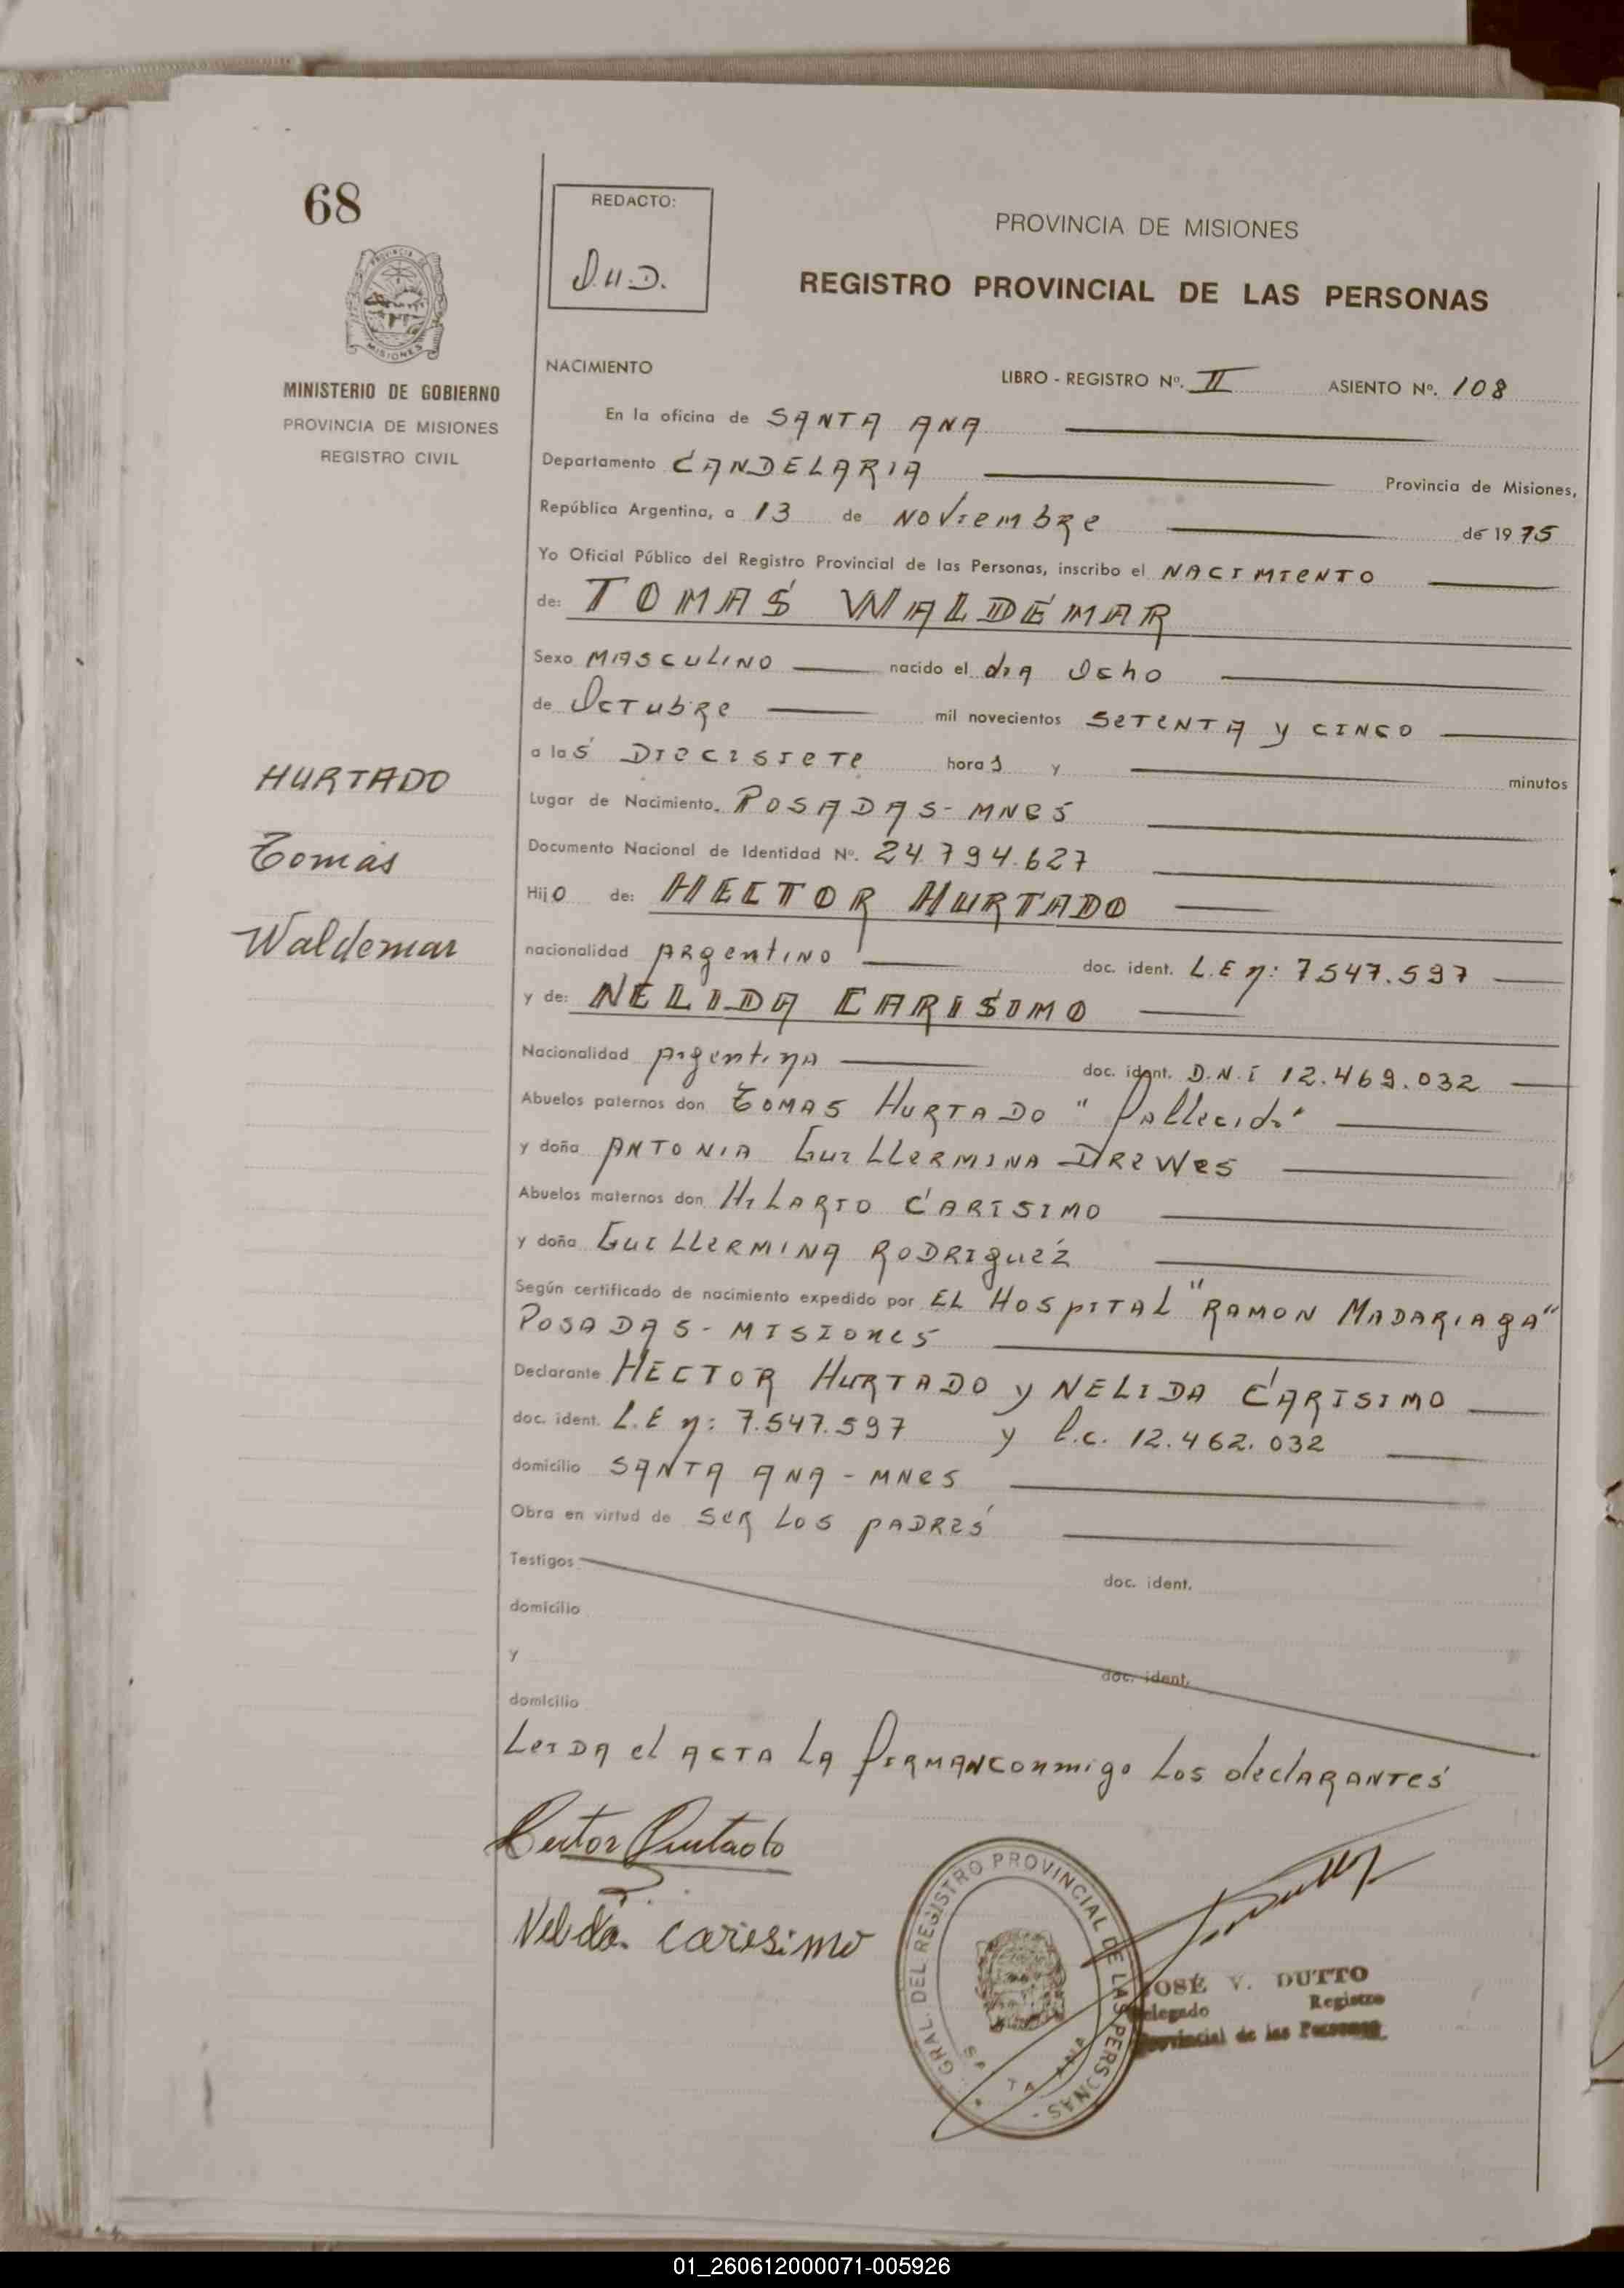 68
REDACTO:
J.U.D.
PROVINCIA DE MISIONES
REGISTRO PROVINCIAL DE LAS PERSONAS
PROVINCIA DE MISIONES
MINISTERIO DE GOBIERNO
PROVINCIA DE MISIONES
REGISTRO CIVIL
HURTADO
Tomás
Waldemar
NACIMIENTO LIBRO - REGISTRO Nº. II ASIENTO Nº. 108
En la oficina de SANTA ANA
Departamento CANDELARIA Provincia de Misiones,
República Argentina, a 13 de NOViembre de 1975
Yo Oficial Público del Registro Provincial de las Personas, inscribo el NACIMIENTO
de: TOMAS WALDEMAR
Sexo MASCULINO nacido el dia Ocho
de Octubre mil novecientos SETENTA y CINCO
a las DIECISIETE horas y minutos
Lugar de Nacimiento. POSADAS - MNES
Documento Nacional de Identidad Nº. 24.794.627
Hijo de: HECTOR HURTADO
nacionalidad ARgentINO doc. ident. L.E n: 7.547.597
y de: NELIDA CARISIMO
Nacionalidad Argentina doc. ident. D.N.I 12.469.032
Abuelos paternos don TOMAS HURTADO "fallecido"
y doña ANTONIA GuiLLERMINA DREWES
Abuelos maternos don HILARIO CARISIMO
y doña GuiLLERMINA RODRIguez
Según certificado de nacimiento expedido por EL HOSPITAL "RAMON MADARIAGA"
POSADAS - MISIONES
Declarante HECTOR HURTADO y NELIDA CARISIMO
doc. ident. L.E n: 7.547.597 y l.c. 12.462.032
domicilio SANTA ANA - MNES
Obra en virtud de SER LOS PADRES
Testigos doc. ident.
domicilio
y doc. ident.
domicilio
LeiDA el ACTA LA fiRMAN conmigo Los declARANTES
Hector Hurtado
Nelida carisimo
GRAL. DEL REGISTRO PROVINCIAL DE LAS PERSONAS
SANTA ANA
JOSÉ V. DUTTO
Delegado Registro
Provincial de las Personas
01_260612000071-005926